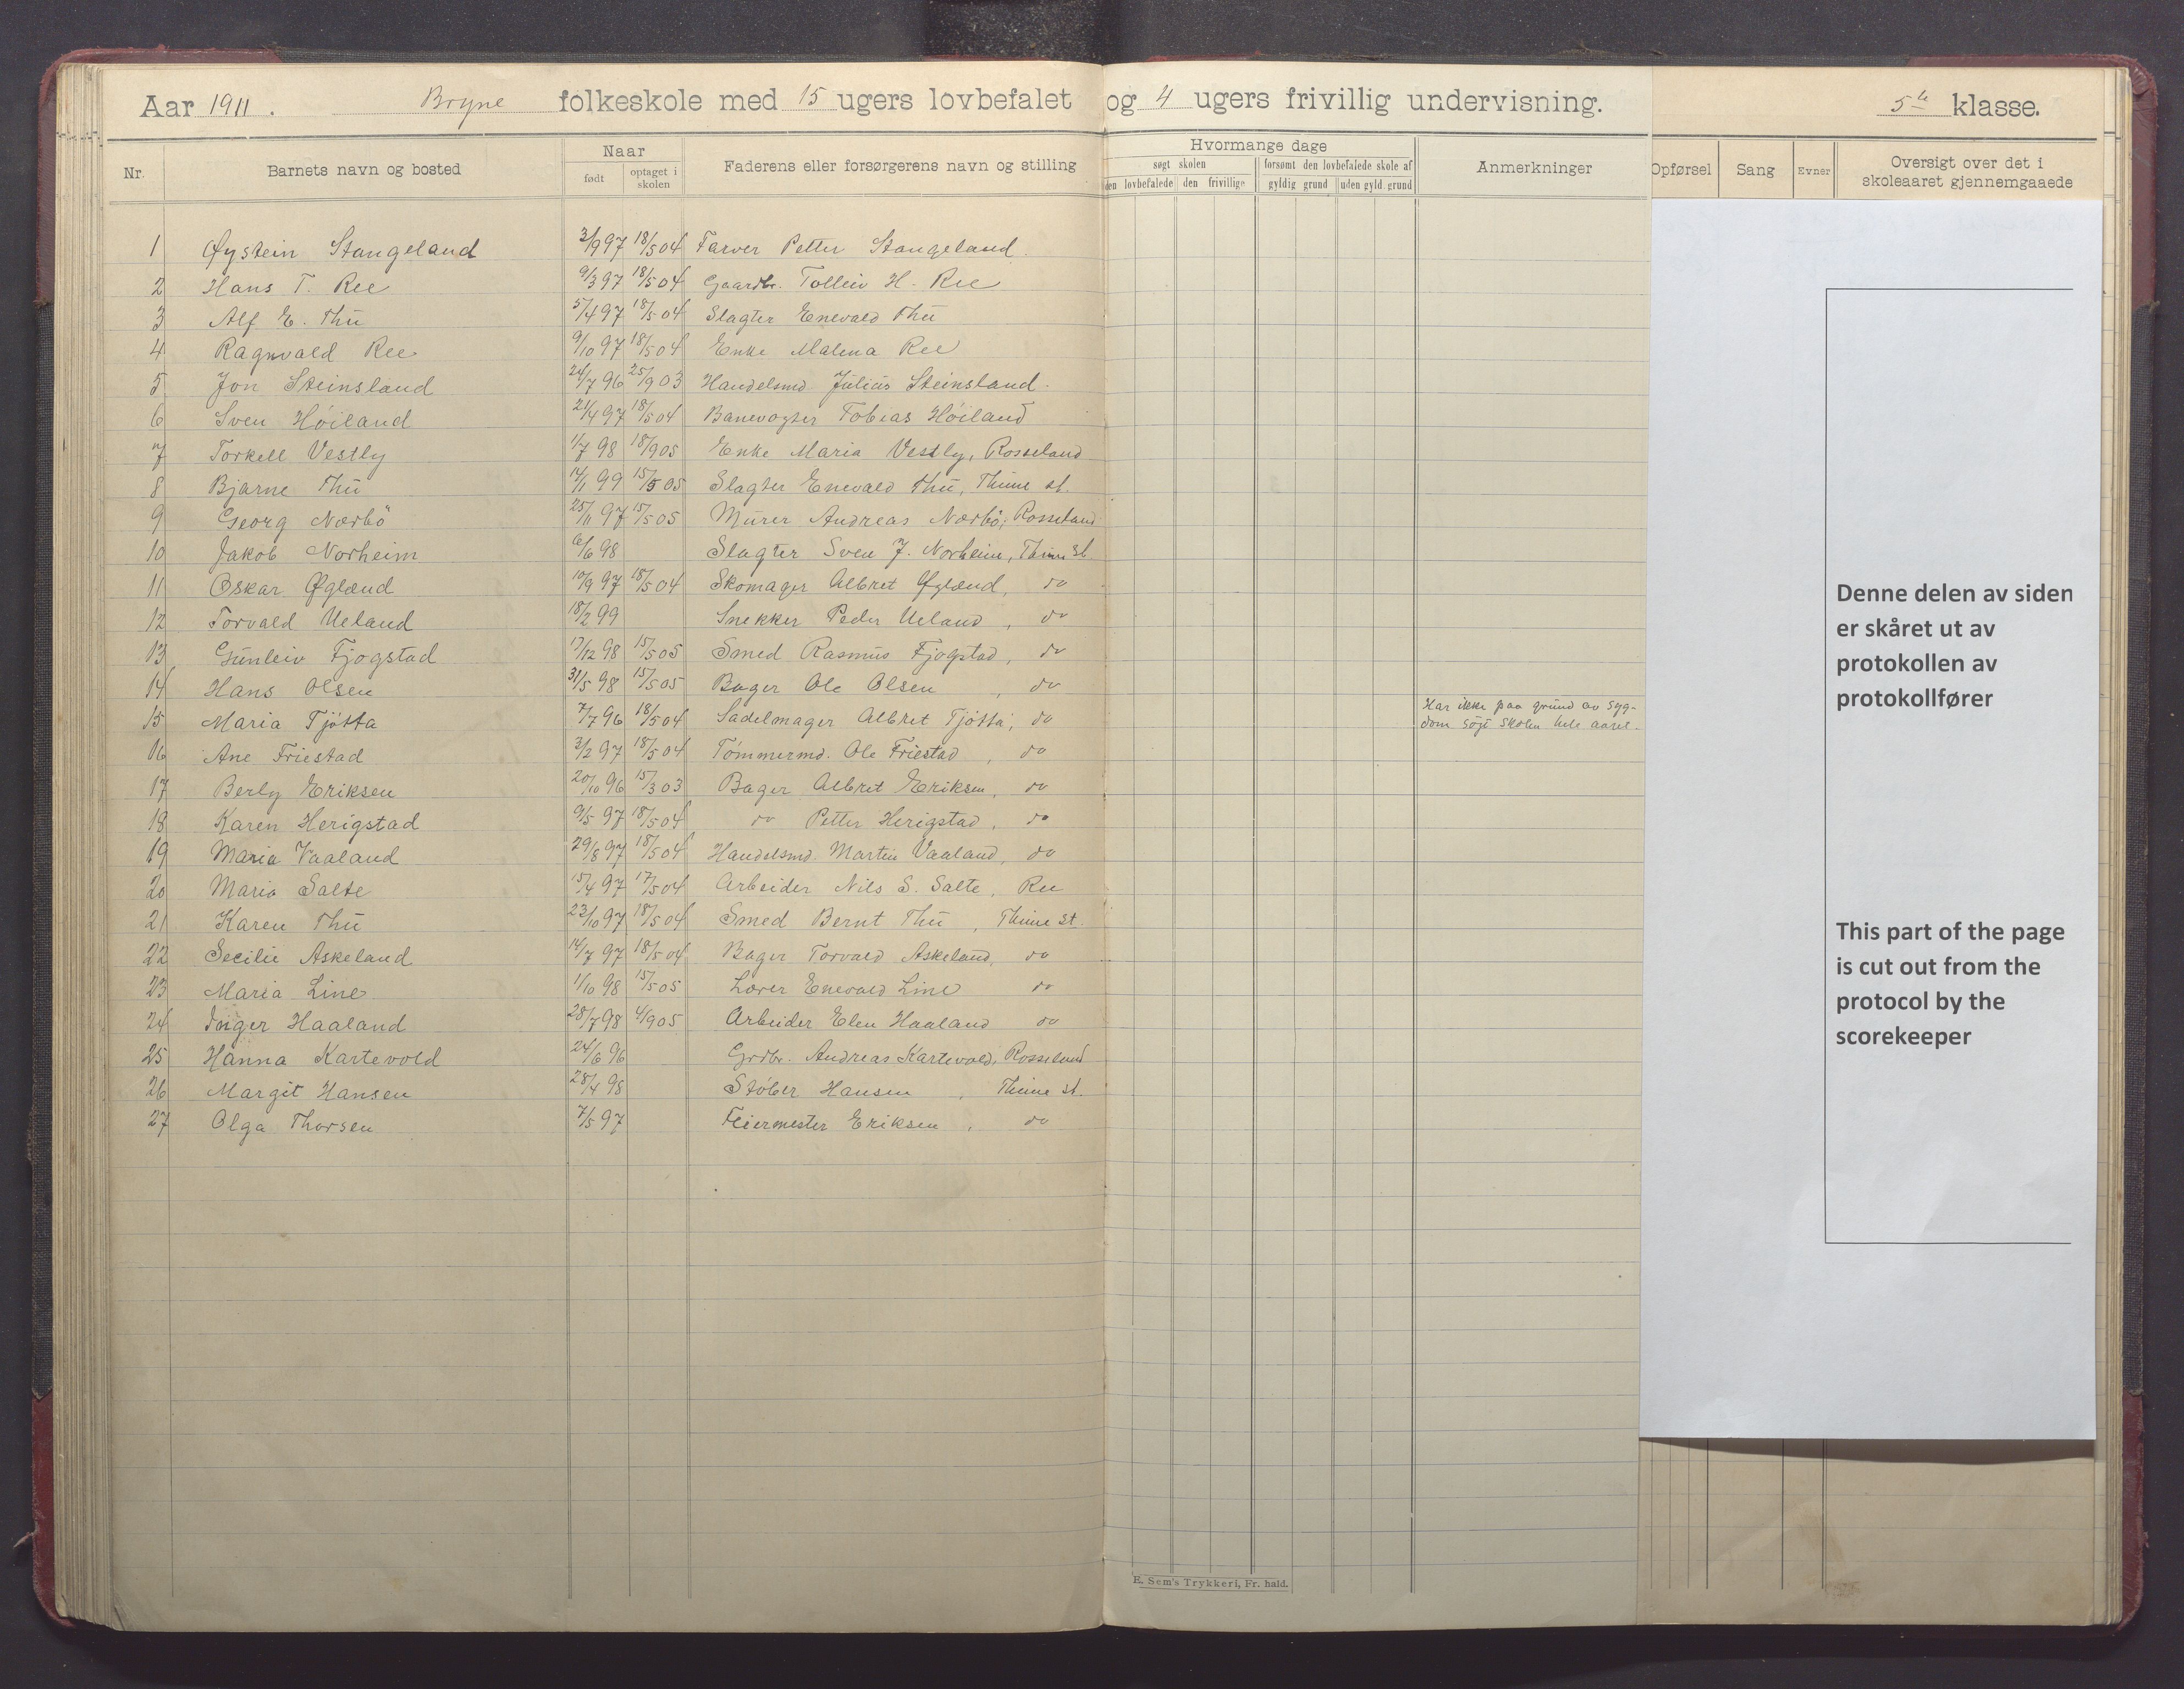 Aar 1911. Bryne folkeskole med 15 ugers lovbefalet og 4 ugers frivillig undervisning. 5te klasse.
Nr. Barnets navn og bosted Naar født optaget i skolen Faderens eller forsørgerens navn og stilling Hvormange dage søgt skolen den lovbefalede den frivillige forsømt den lovbefalede skole af gyldig grund uden gyld. grund Anmerkninger Opførsel Sang Evner Oversigt over det i skoleaaret gjennemgaaede
1 Øystein Stangeland 3/9 97 18/5 04 Farver Petter Stangeland.
2 Hans T. Ree 9/3 97 18/5 04 Gaardbr. Tolleiv H. Ree
3 Alf E. Thu 5/4 97 18/5 04 Slagter Enevald Thu
4 Ragnvald Ree 9/10 97 18/5 04 Enke Malena Ree
5 Jon Steinsland 24/7 96 25/9 03 Handelsmd. Julius Steinsland.
6 Sven Höiland 21/4 97 18/5 04 Banevogter Tobias Höiland
7 Torkell Vestly 1/7 98 18/9 05 Enke Maria Vestly, Rosseland
8 Bjarne Thu 14/1 99 15/5 05 Slagter Enevald Thu, Thime st.
9 Georg Nærbö 25/11 97 15/5 05 Murer Andreas Nærbö, Rosseland
10 Jakob Norheim 6/6 98 Slagter Sven J. Norheim, Thime st.
11 Oskar Øglænd 10/9 97 18/5 04 Skomager Albret Øglænd, do
12 Torvald Ueland 18/2 99 Snekker Peder Ueland, do
13 Gunleiv Fjogstad 17/12 98 15/5 05 Smed Rasmus Fjogstad, do
14 Hans Olsen 31/5 98 15/5 05 Bager Ole Olsen, do
15 Maria Tjötta 7/7 96 18/5 04 Sadelmager Albret Tjötta, do Har ikke paa grund av syg-
dom søgt skolen hele aaret.
16 Ane Friestad 3/2 97 18/5 04 Tömmermd. Ole Friestad, do
17 Berly Eriksen 20/10 96 15/3 03 Bager Albret Eriksen, do
18 Karen Herigstad 9/5 97 18/5 04 do Petter Herigstad, do
19 Maria Vaaland 29/8 97 18/5 04 Handelsmd. Martin Vaaland, do
20 Maria Salte 15/4 97 17/5 04 Arbeider Nils S. Salte, Ree
21 Karen Thu 23/10 97 18/5 04 Smed Bernt Thu, Thime st.
22 Secilie Askeland 14/7 97 18/5 04 Bager Torvald Askeland, do
23 Maria Line 1/10 98 15/5 05 Lærer Enevald Line do
24 Inger Haaland 28/7 98 4/9 05 Arbeider Elen Haaland do
25 Hanna Kartevold 24/6 96 Grdbr. Andreas Kartevold, Rosseland
26 Margit Hansen 28/4 98 Stöber Hansen, Thime st.
27 Olga Thorsen 7/5 97 Feiermester Eriksen, do
E. Sem's Trykkeri, Fr. hald.
Denne delen av siden
er skåret ut av
protokollen av
protokollfører
This part of the page
is cut out from the
protocol by the
scorekeeper